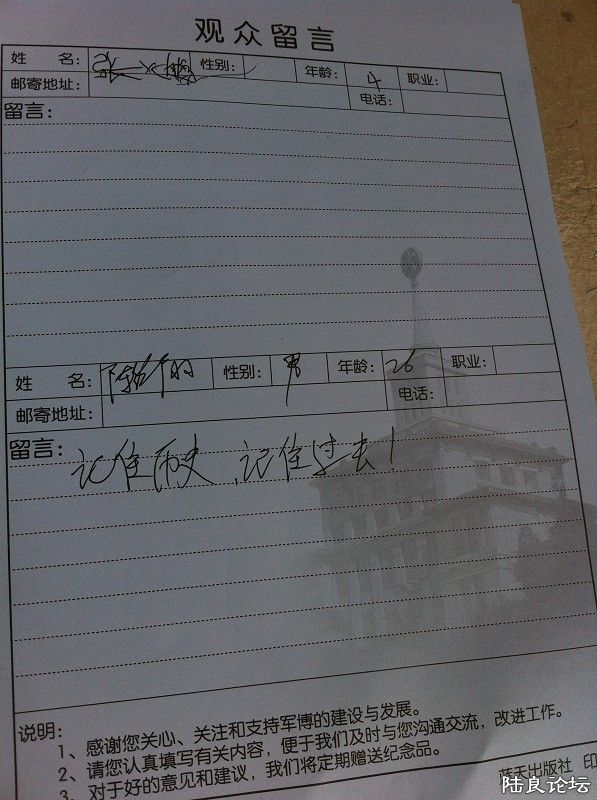 观众留言
姓 名: 性别: 年龄: 4 职业:
邮寄地址: 电话:
留言:
姓 名: 陈 明 性别: 男 年龄: 26 职业:
邮寄地址: 电话:
留言: 记住历史、记住过去!
说明:
1、感谢您关心、关注和支持军博的建设与发展。
2、请您认真填写有关内容,便于我们及时与您沟通交流,改进工作。
3、对于好的意见和建议,我们将定期赠送纪念品。
蓝天出版社 印
陆良论坛